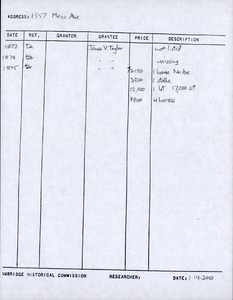 ADDRESS: 1557 Mass Ave
DATE REF. GRANTOR GRANTEE PRICE DESCRIPTION
1873 tx James V. Taylor not listed
1874 tx " " missing
1875 tx " " $2150 1 house
3000 1 stable
12,000 1 lot 17,000 sf
$800 4 horses
CAMBRIDGE HISTORICAL COMMISSION RESEARCHER: DATE: